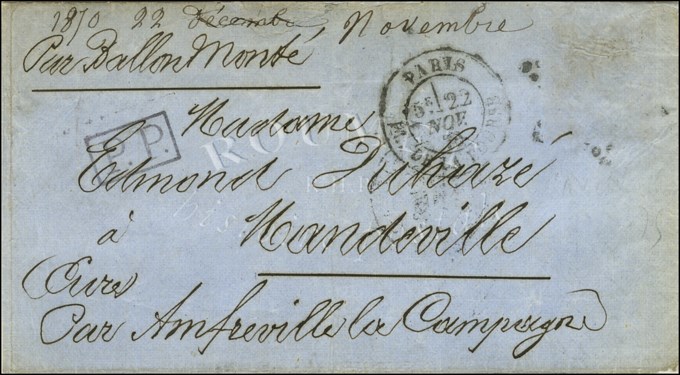 1870 22 Décembre Novembre
Par Ballon Monté
PARIS
5E 22
NOV
P.P.
Madame
Edmond Duhazé
à Mandeville
(Eure
Par Amfreville la Campagne)